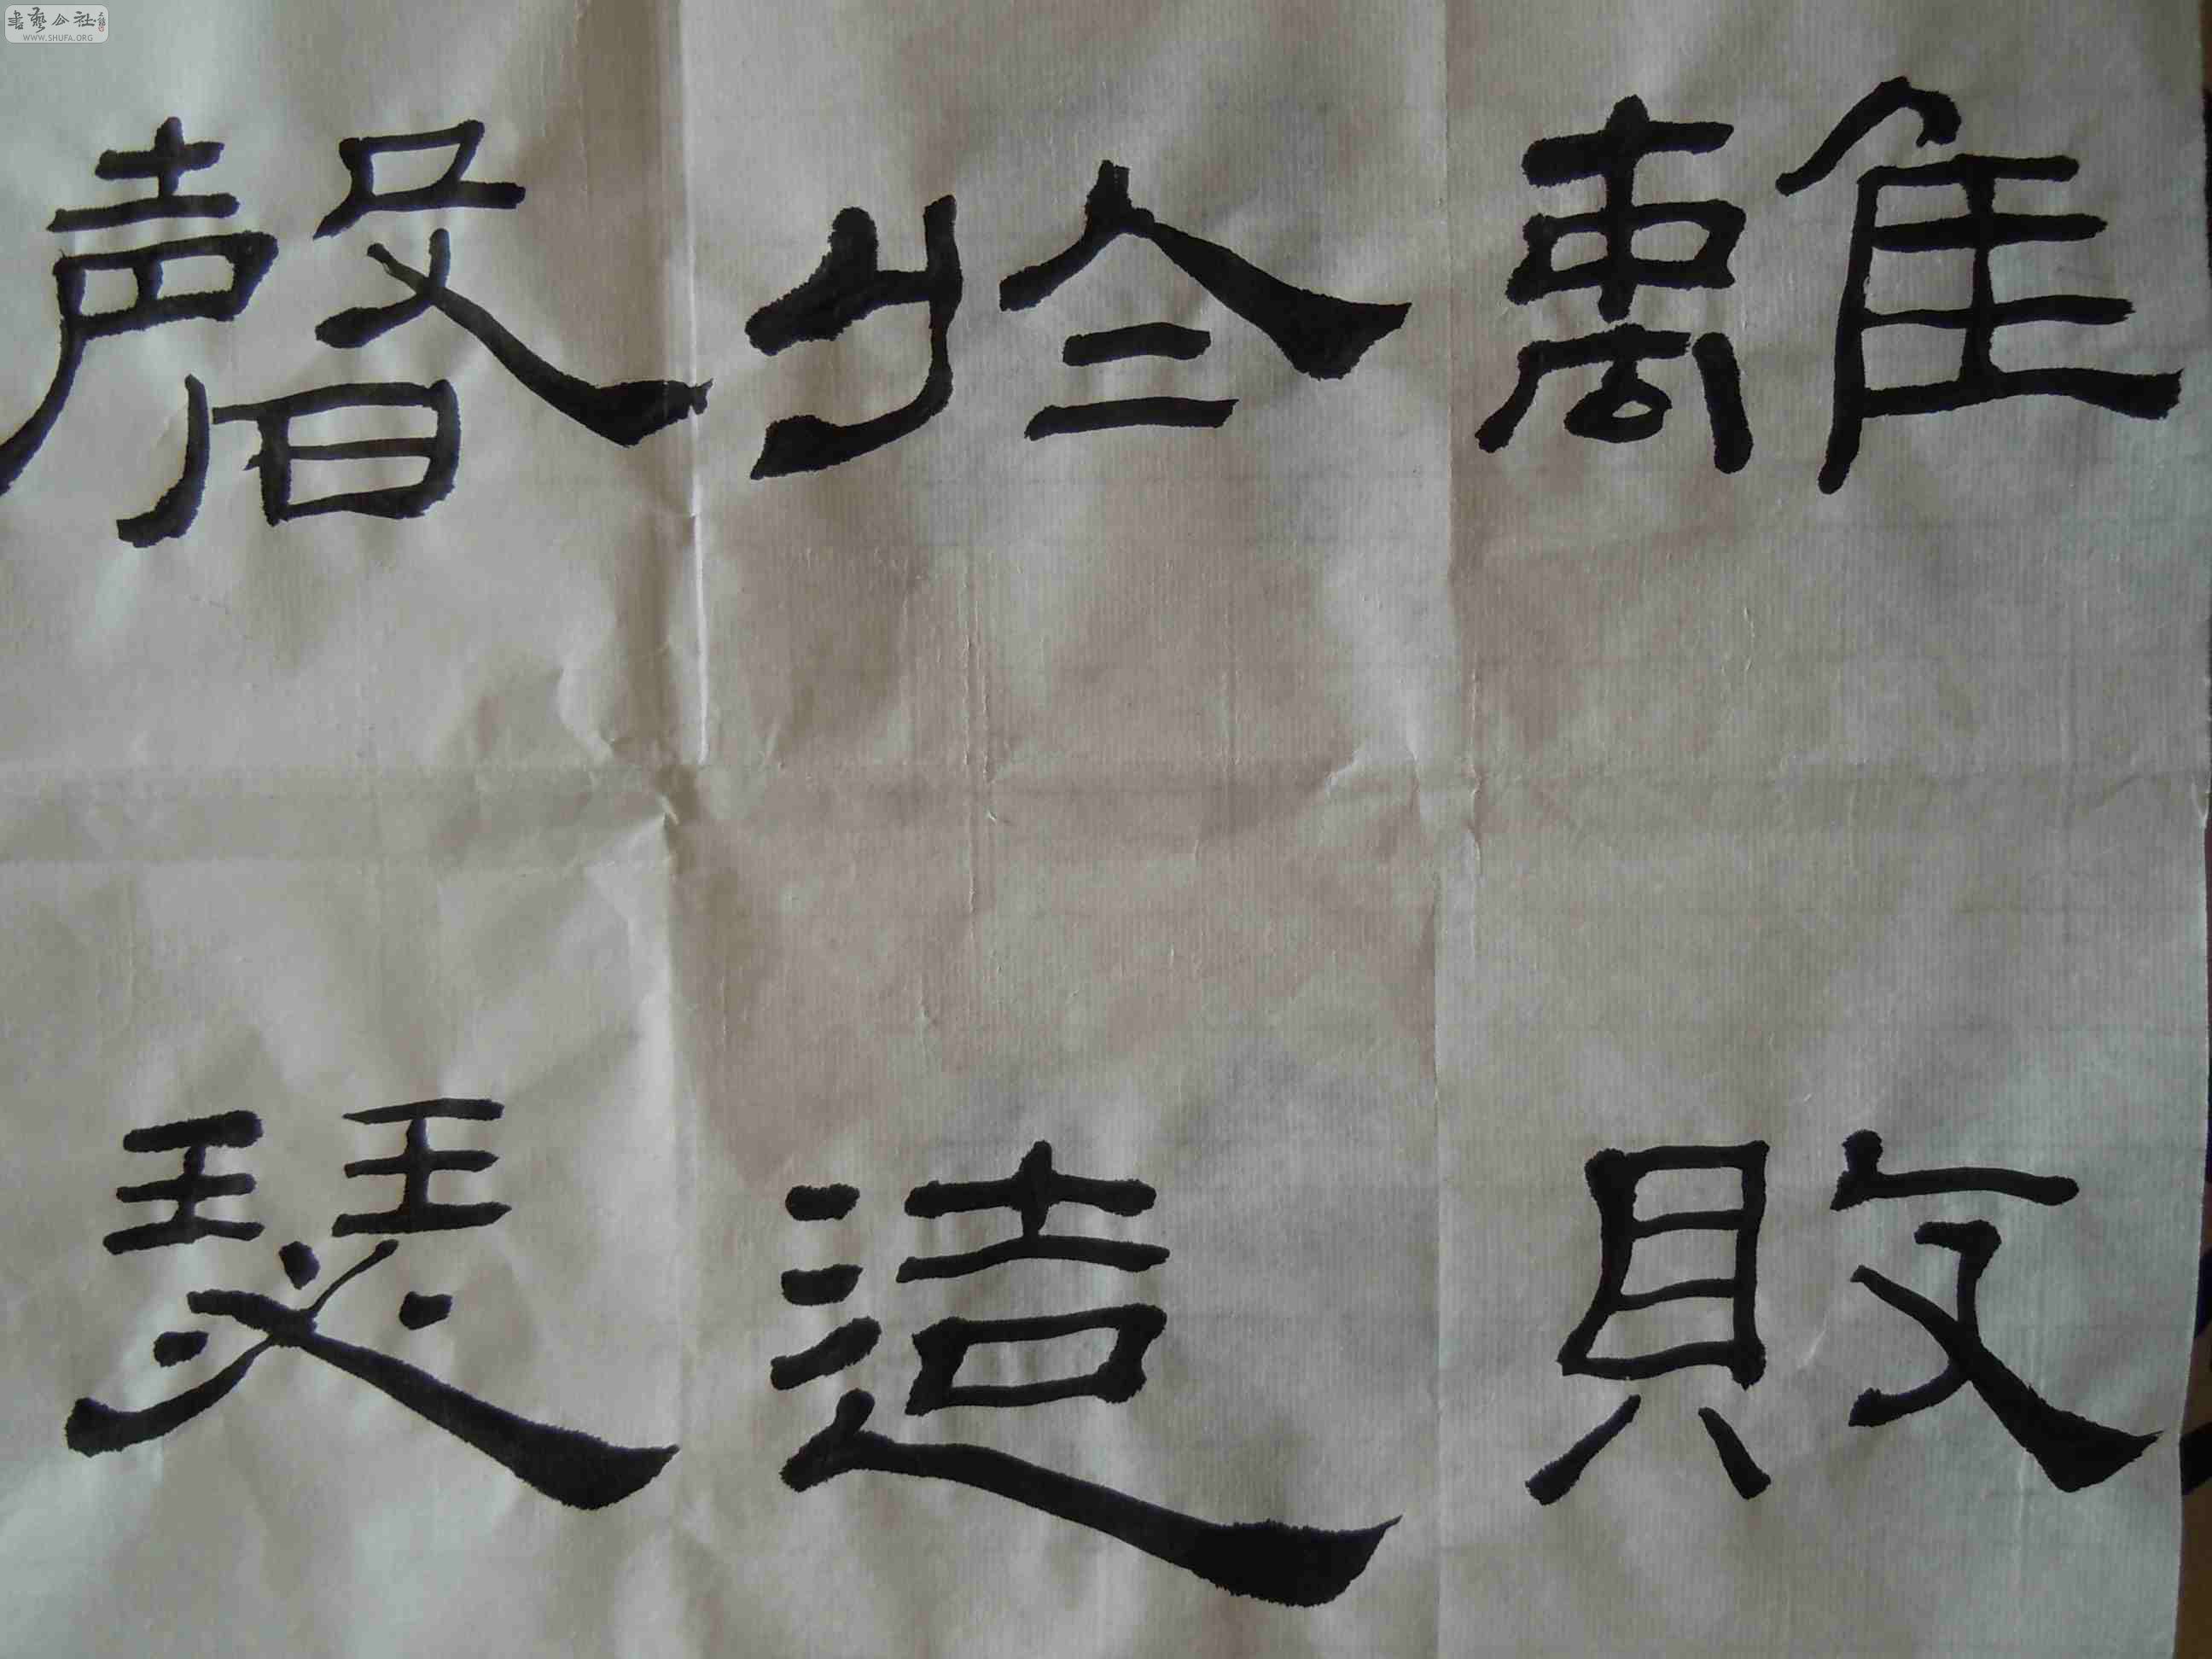 離敗
於造
聲瑟
書藝公社
WWW.SHUFA.ORG